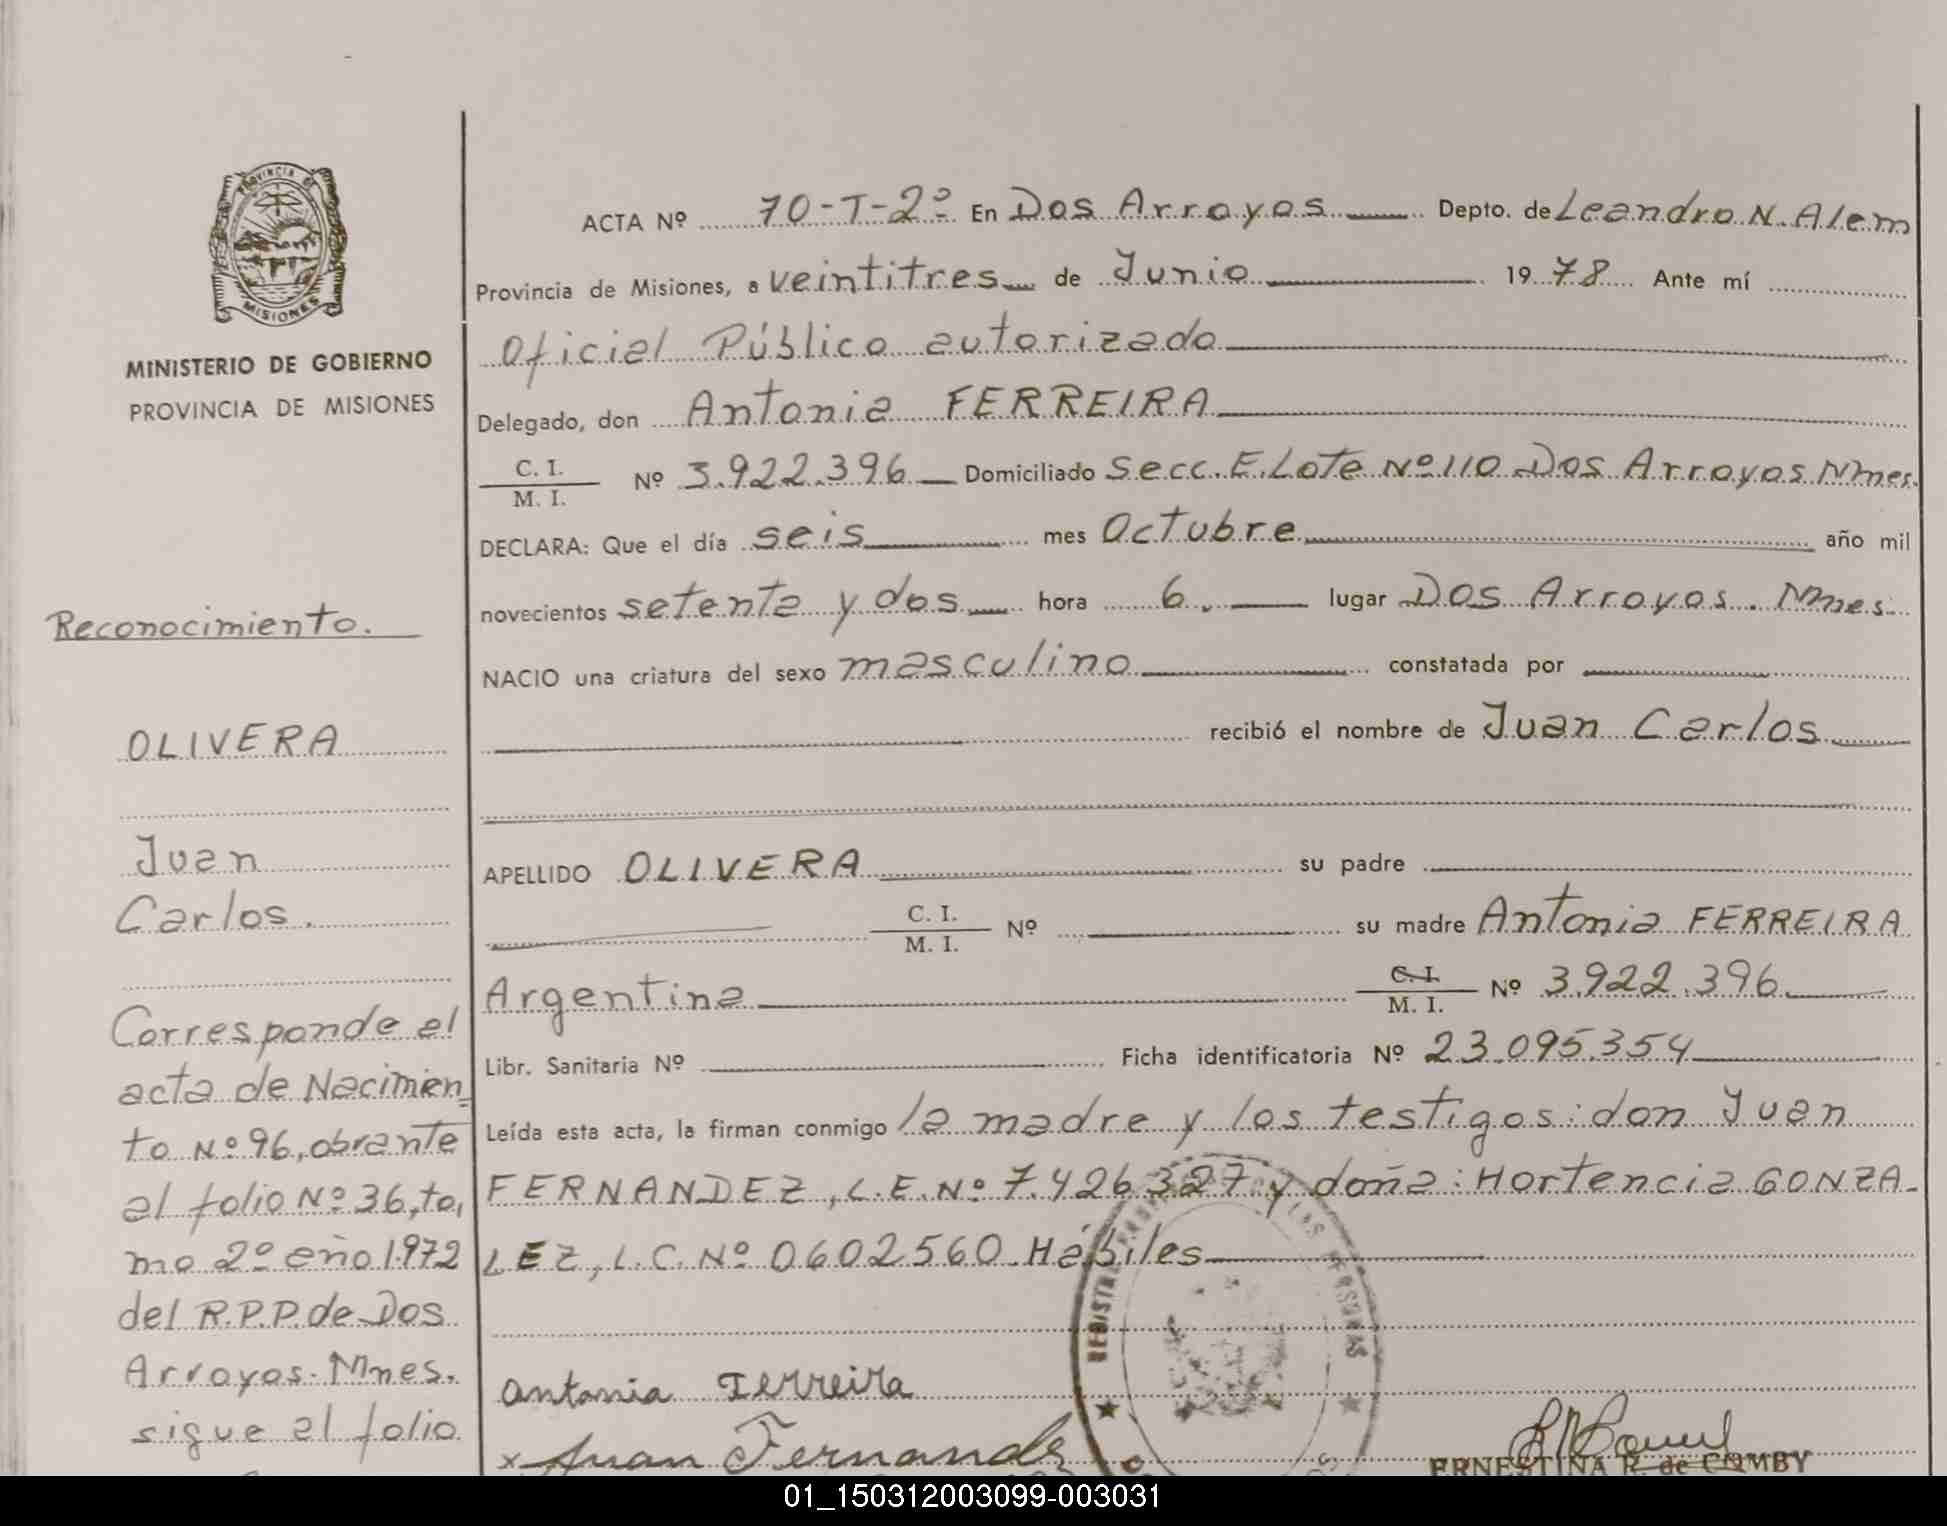 PROVINCIA DE
MISIONES
MINISTERIO DE GOBIERNO
PROVINCIA DE MISIONES
Reconocimiento.
OLIVERA
Juan
Carlos.
Corresponde al
acta de Nacimien
to Nº 96, obrante
al folio Nº 36, to,
mo 2º año 1.972
del R.P.P. de Dos
Arroyos. Mnes.
sigue al folio
ACTA Nº 70-T-2º En Dos Arroyos Depto. de Leandro N. Alem
Provincia de Misiones, a veintitres de Junio 19 78 Ante mí
Oficial Público autorizado
Delegado, don Antonia FERREIRA
C. I. / M. I. Nº 3.922.396 Domiciliado Secc. E. Lote Nº 110 Dos Arroyos Mnes.
DECLARA: Que el día seis mes Octubre año mil
novecientos setenta y dos hora 6. lugar Dos Arroyos. Mnes.
NACIO una criatura del sexo masculino constatada por
recibió el nombre de Juan Carlos
APELLIDO OLIVERA su padre
C. I. / M. I. Nº su madre Antonia FERREIRA
Argentina C. I. / M. I. Nº 3.922.396
Libr. Sanitaria Nº Ficha identificatoria Nº 23.095.354
Leída esta acta, la firman conmigo la madre y los testigos: don Juan
FERNANDEZ, L.E. Nº 7.426.327 y doña: Hortencia GONZA-
LEZ, L.C. Nº 0602560. Hábiles
LAS PERSONAS
antonia Ferreira
x Juan Fernandez
ERNESTINA R. de COMBY
01_150312003099-003031